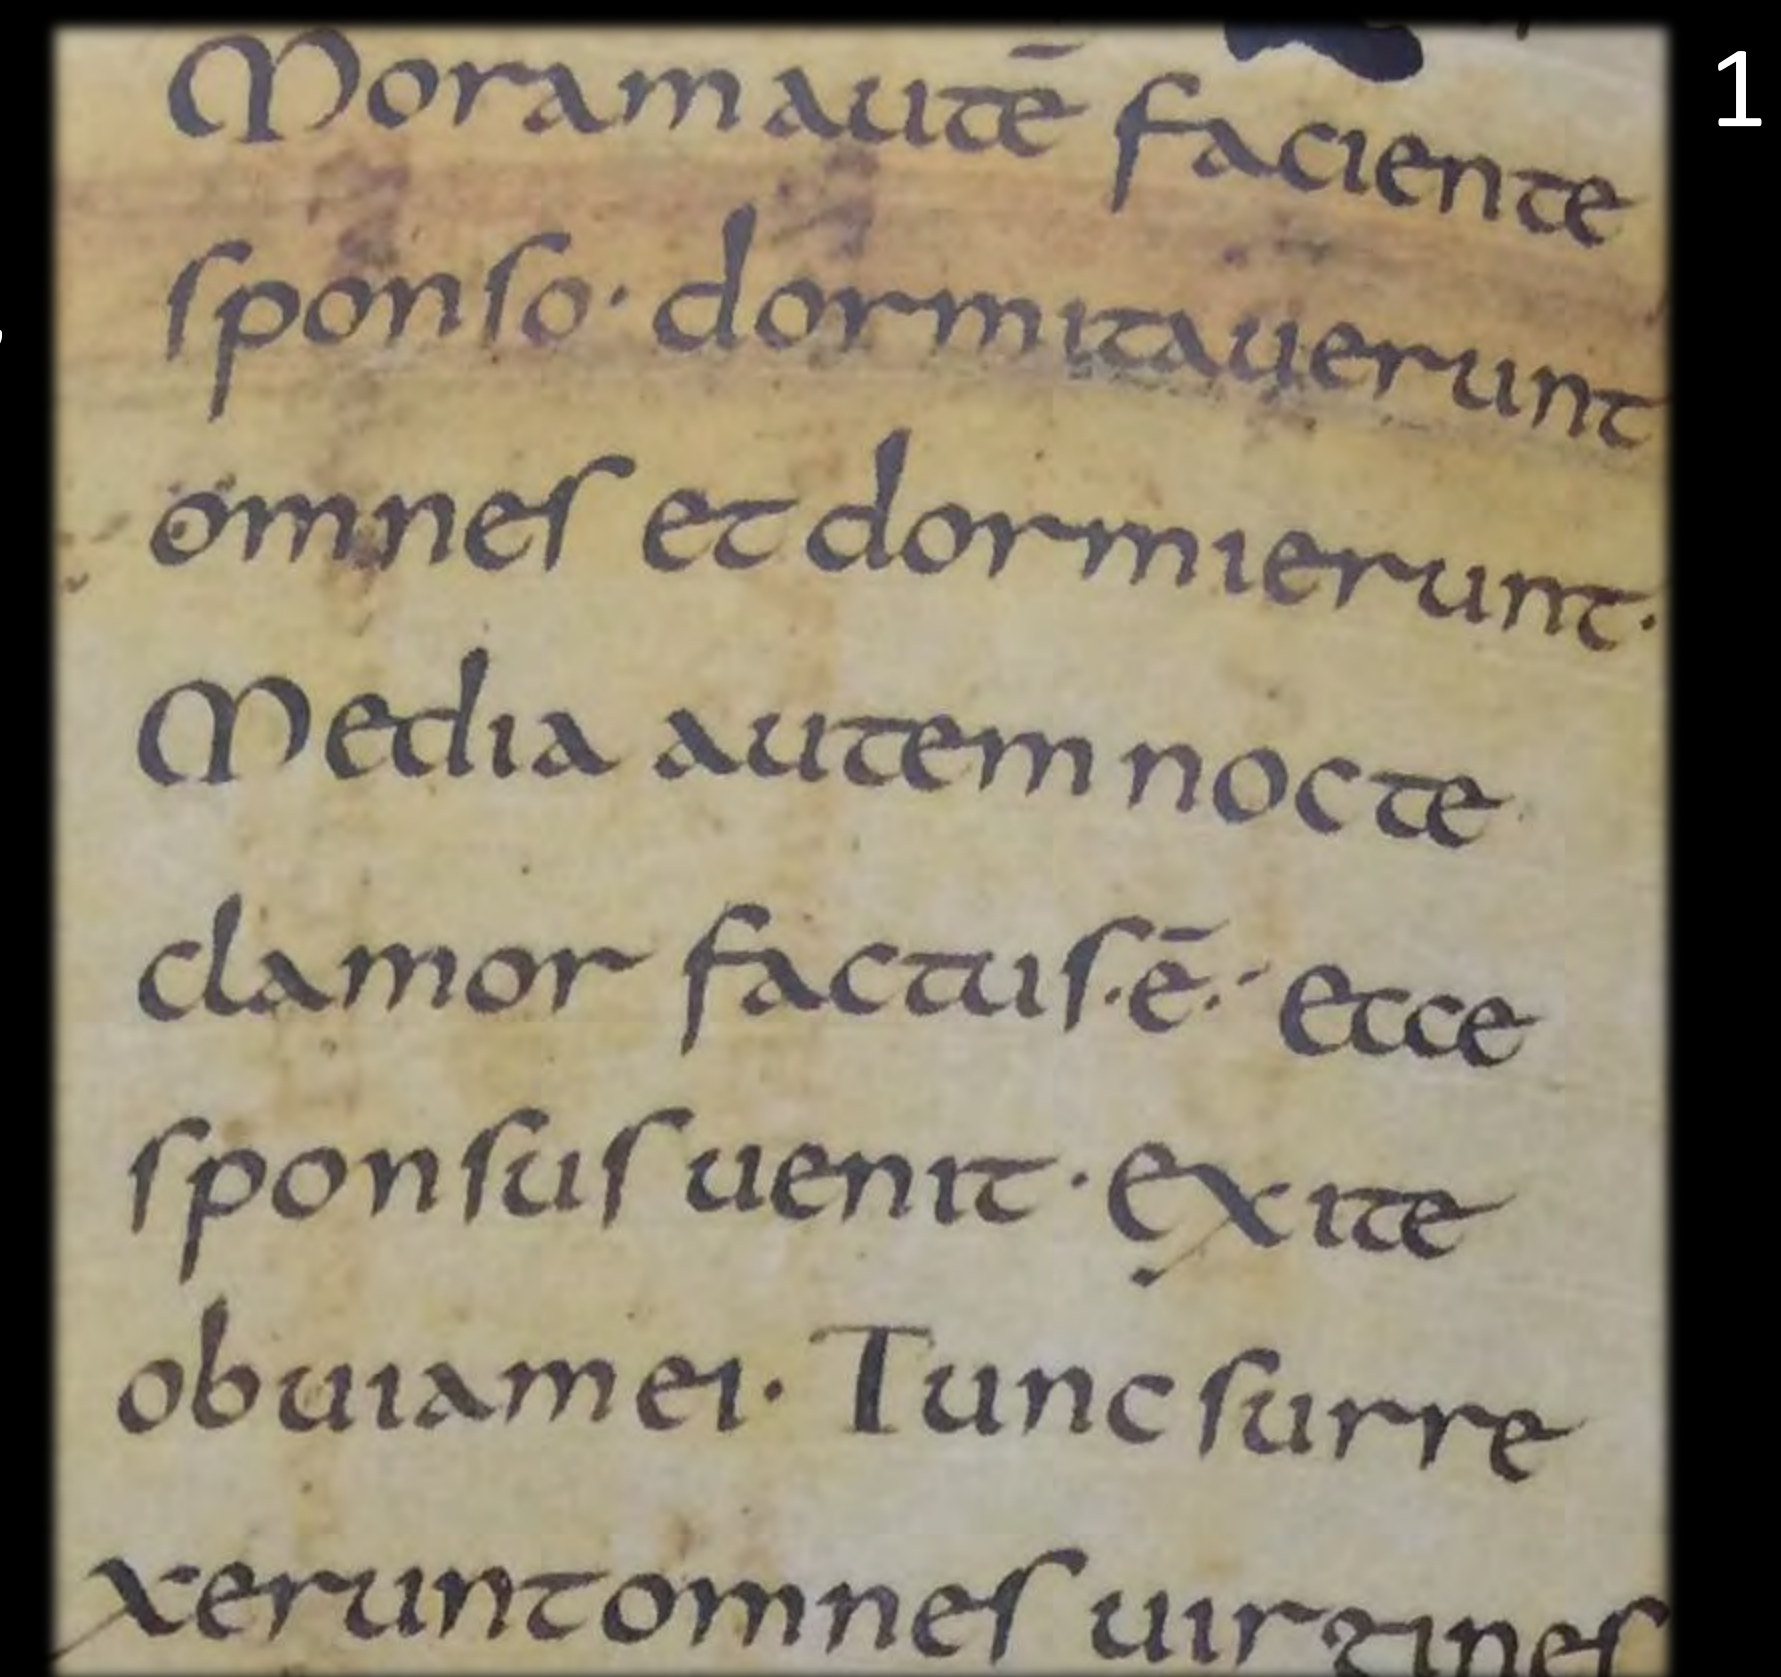 1
Moram autē faciente
sponso· dormitauerunt
omnes et dormierunt·
Media autem nocte
clamor factus·ē·· ecce
sponsus uenit· exite
obuiam ei· Tunc surre
xerunt omnes uirgines